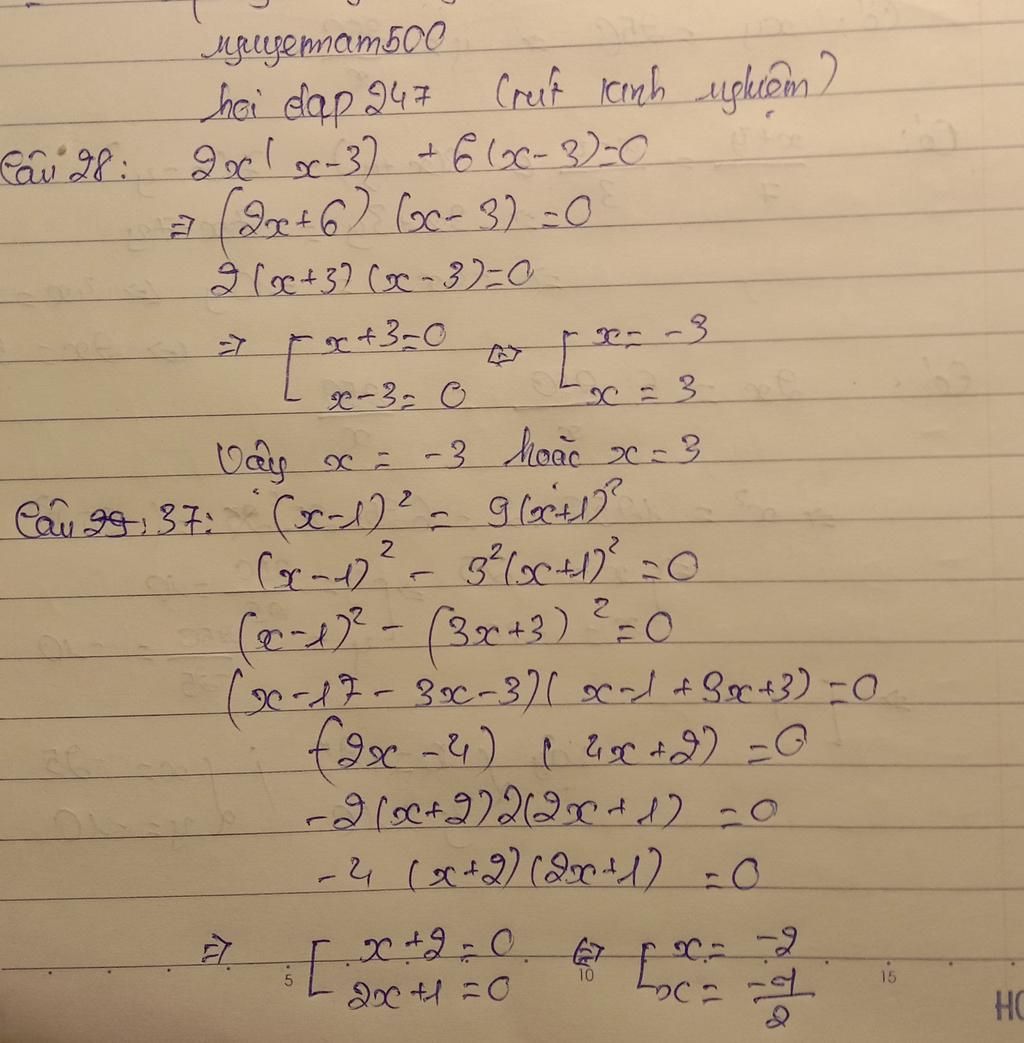 nguyennam500
hoi dap 247 (rut kinh nghiệm)
Câu 28: 2x( x-3) + 6(x-3)=0
⇒ (2x+6) (x-3) =0
2(x+3) (x-3)=0
⇒ [ x+3=0 ⇔ [ x= -3
x-3= 0 x = 3
Vậy x = -3 hoặc x = 3
Câu 29: 37: (x-1)² = 9(x+1)²
(x-1)² - 3²(x+1)² =0
(x-1)² - (3x+3)² =0
(x-17 - 3x-3)( x-1 +3x+3) =0
(-2x -4) ( 4x+2) =0
-2(x+2)2(2x+1) =0
-4 (x+2)(2x+1) =0
⇒ [ x+2 = 0 ⇔ [ x= -2
2x+1 =0 x= -1/2
5 10 15
HO